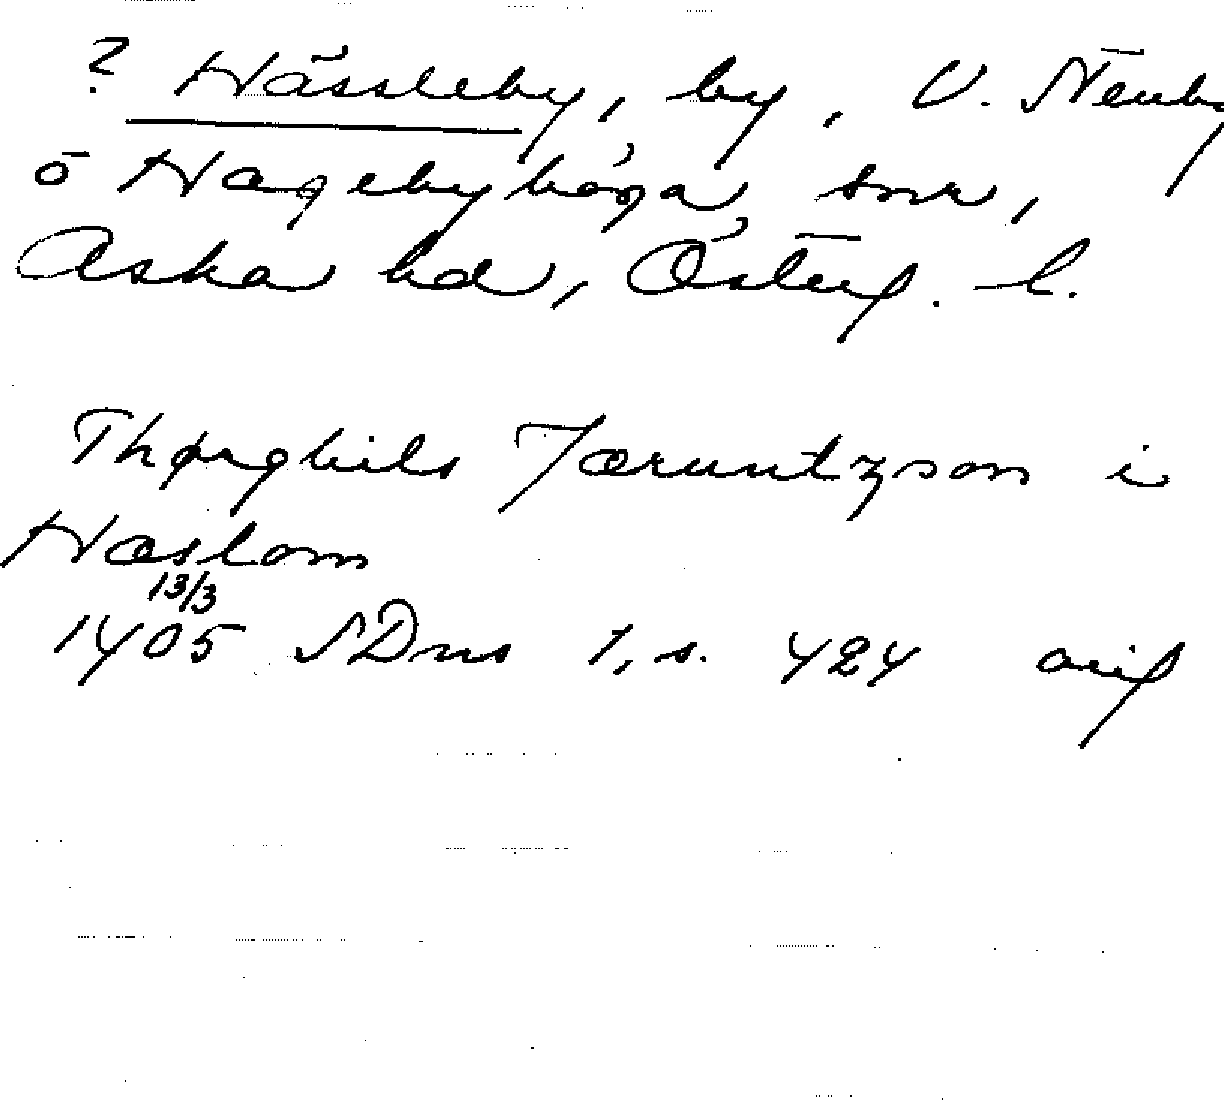 ? Hässleby, by, V. Stenby
o Hagebyhöga snr,
Aska hd, Österg. l.
Thørghils Jæruntzson i
Haslom
13/3
1405 SDns 1, s. 424 orig